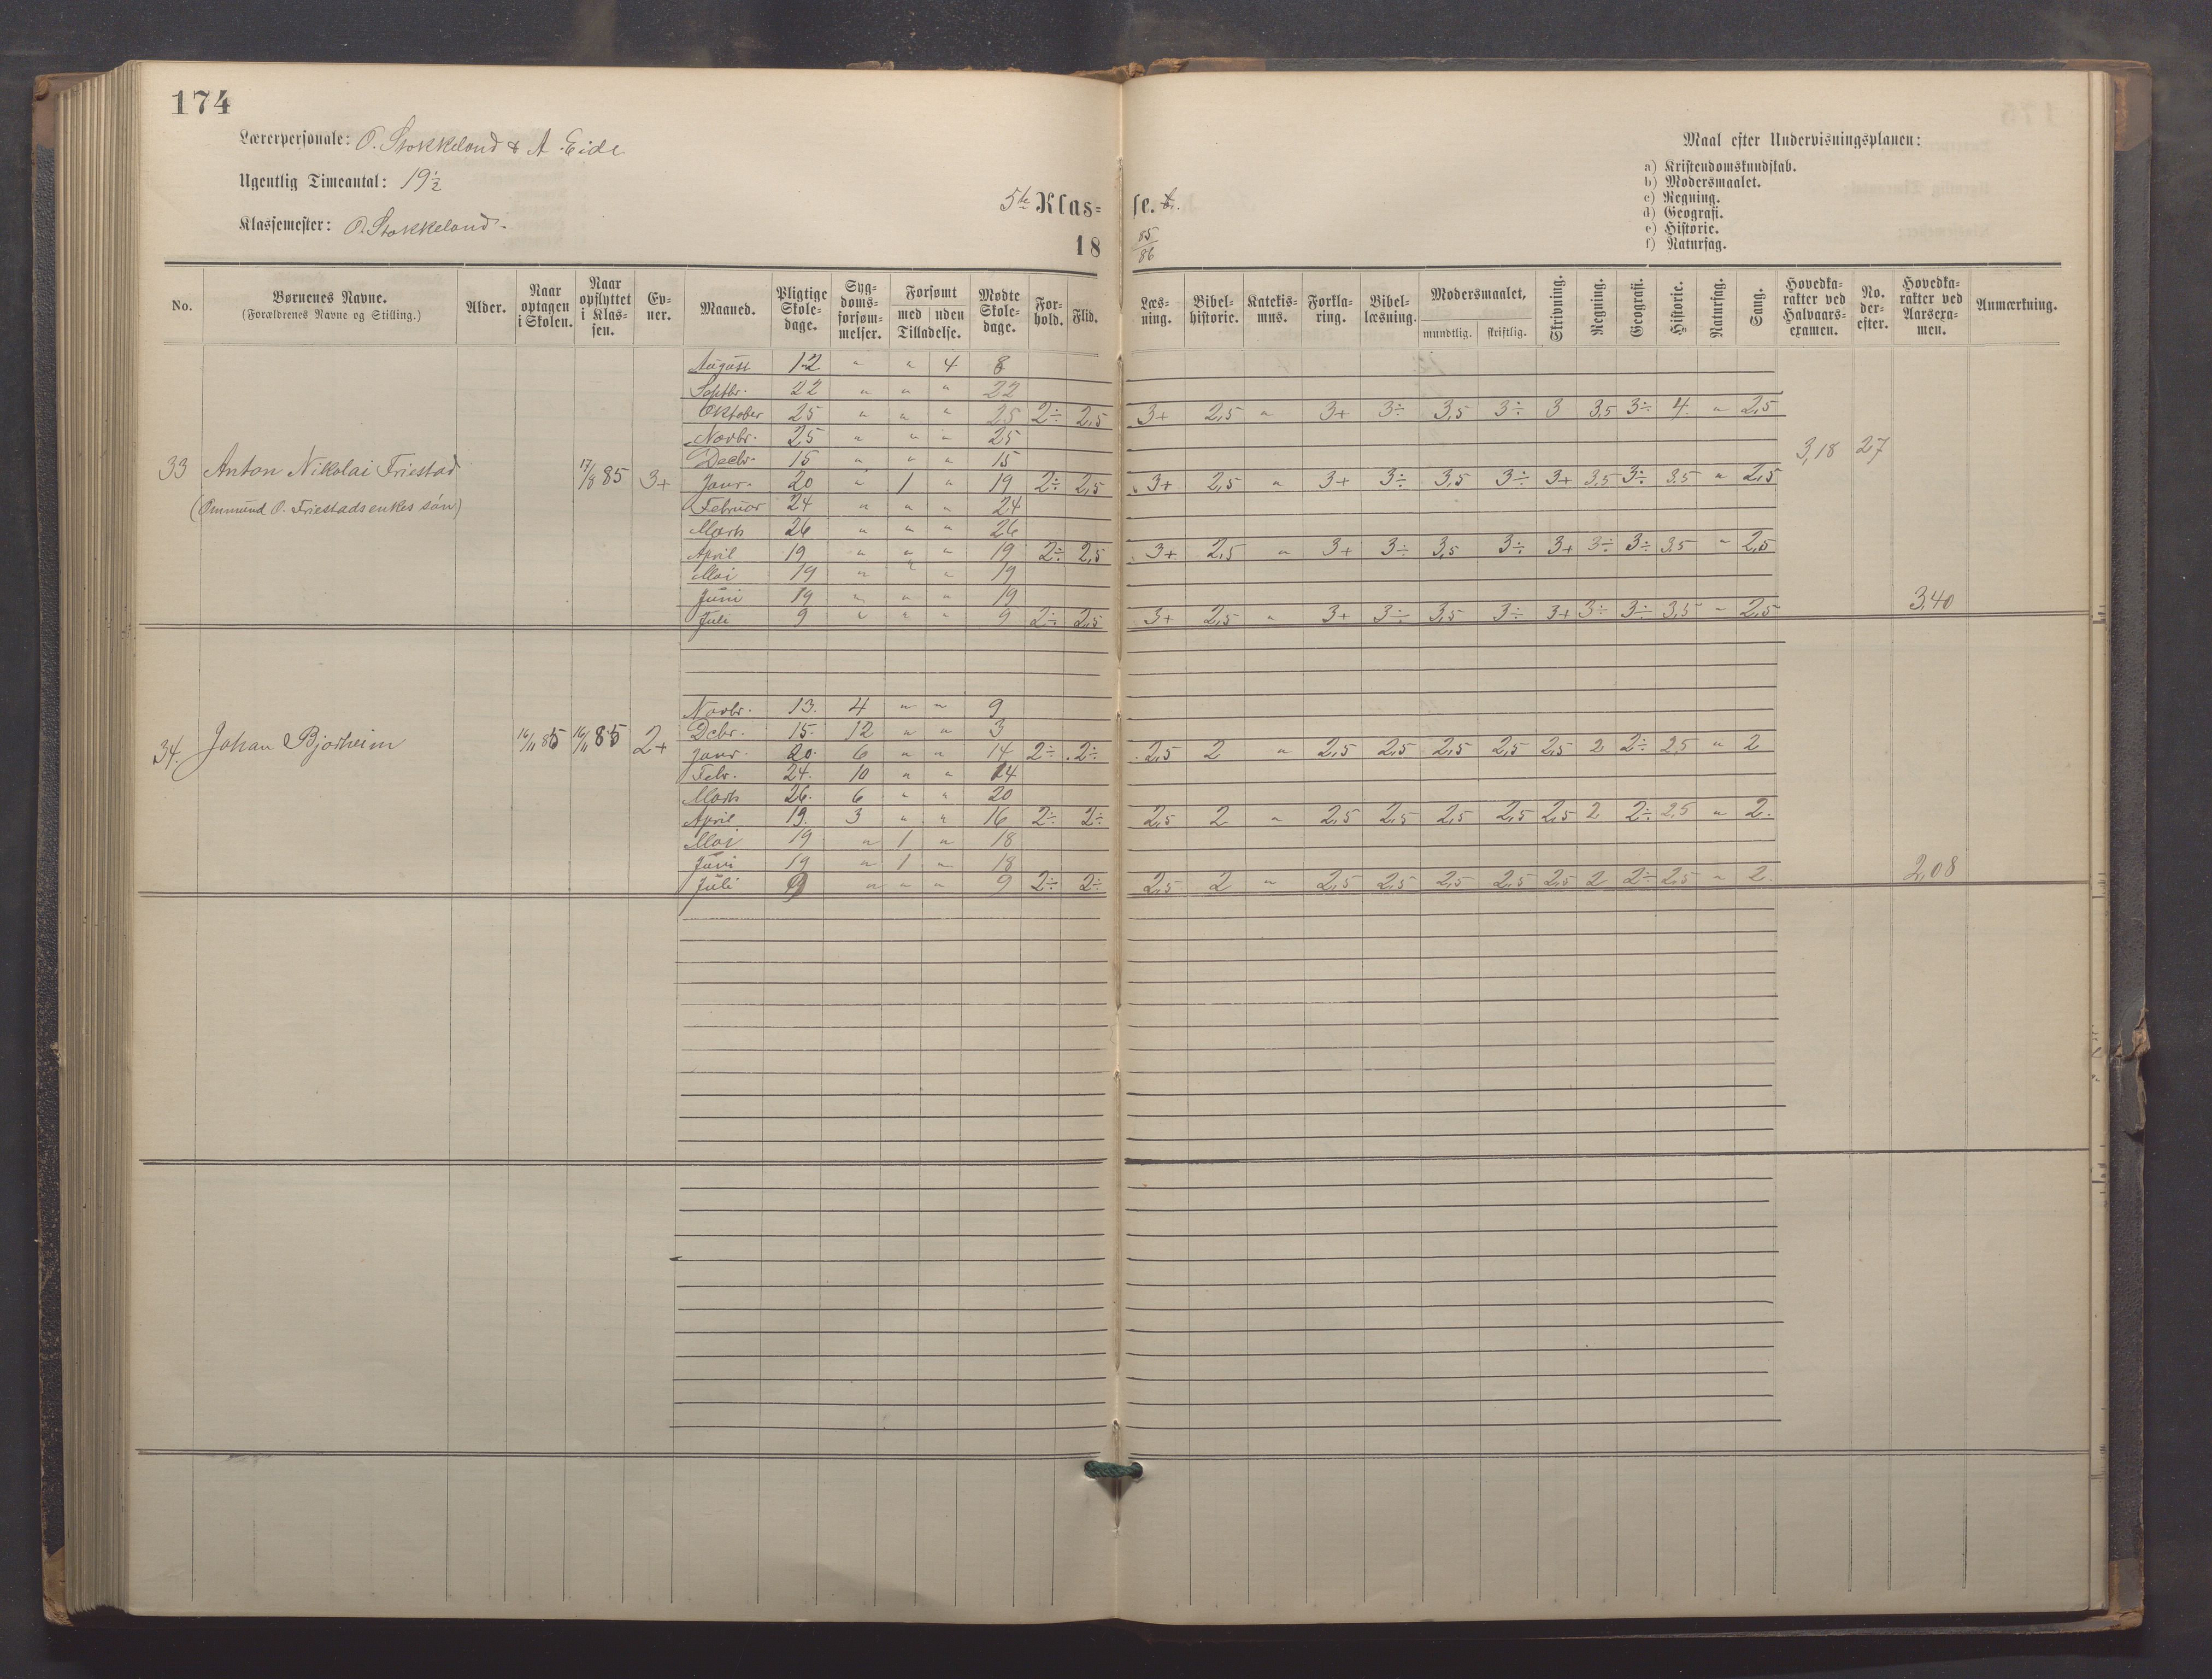 174
Lærerpersonale: O. Stokkeland & A. Eide
Ugentlig Timeantal: 19½
Klassemester: O. Stokkeland.
5te Klas= se. b.
18 85/86
Maal efter Undervisningsplanen:
a) Kristendomskundskab.
b) Modersmaalet.
c) Regning.
d) Geografi.
e) Historie.
f) Naturfag.
No. | Børnenes Navne. (Forældrenes Navne og Stilling.) | Alder. | Naar optagen i Skolen. | Naar opflyttet i Klas- sen. | Ev- ner. | Maaned. | Pligtige Skole- dage. | Syg- doms- forsøm- melser. | Forsømt med Tilladelse. | uden Tilladelse. | Mødte Skole- dage. | For- hold. | Flid. | Læs- ning. | Bibel- historie. | Katekis- mus. | Forkla- ring. | Bibel- læsning. | Modersmaalet, mundtlig. | skriftlig. | Skrivning. | Regning. | Geografi. | Historie. | Naturfag. | Sang. | Hovedka- rakter ved Halvaars- examen. | No. der- efter. | Hovedka- rakter ved Aarsexa- men. | Anmærkning.
August 12 " " 4 8
Septbr. 22 " " " 22
Oktober 25 " " " 25 2÷ 2,5 3+ 2,5 " 3+ 3÷ 3,5 3÷ 3 3,5 3÷ 4 " 2,5
Novbr. 25 " " " 25
Decbr. 15 " " " 15 3,18 27
33 Anton Nikolai Friestad 17/8 85 3+ Janr. 20 " 1 " 19 2÷ 2,5 3+ 2,5 " 3+ 3÷ 3,5 3÷ 3+ 3,5 3÷ 3,5 " 2,5
(Ommund O. Friestads enkes søn) Februar 24 " " " 24
Marts 26 " " " 26
April 19 " " " 19 2÷ 2,5 3+ 2,5 " 3+ 3÷ 3,5 3÷ 3+ 3÷ 3÷ 3,5 " 2,5
Mai 19 " " " 19
Juni 19 " " " 19 3,40
Juli 9 " " " 9 2÷ 2,5 3+ 2,5 " 3+ 3÷ 3,5 3÷ 3+ 3÷ 3÷ 3,5 " 2,5
Novbr. 13. 4 " " 9
Dcbr. 15. 12 " " 3
34. Johan Bjorheim 16/11 85 16/11 85 2+ Janr. 20. 6 " " 14 2÷ 2÷ 2,5 2 " 2,5 2,5 2,5 2,5 2,5 2 2÷ 2,5 " 2
Febr. 24. 10 " " 14
Marts 26. 6 " " 20
April 19. 3 " " 16 2÷ 2÷ 2,5 2 " 2,5 2,5 2,5 2,5 2,5 2 2÷ 2,5 " 2.
Mai 19 " 1 " 18
Juni 19 " 1 " 18 2,08
Juli 9 " " " 9 2÷ 2÷ 2,5 2 " 2,5 2,5 2,5 2,5 2,5 2 2÷ 2,5 " 2.